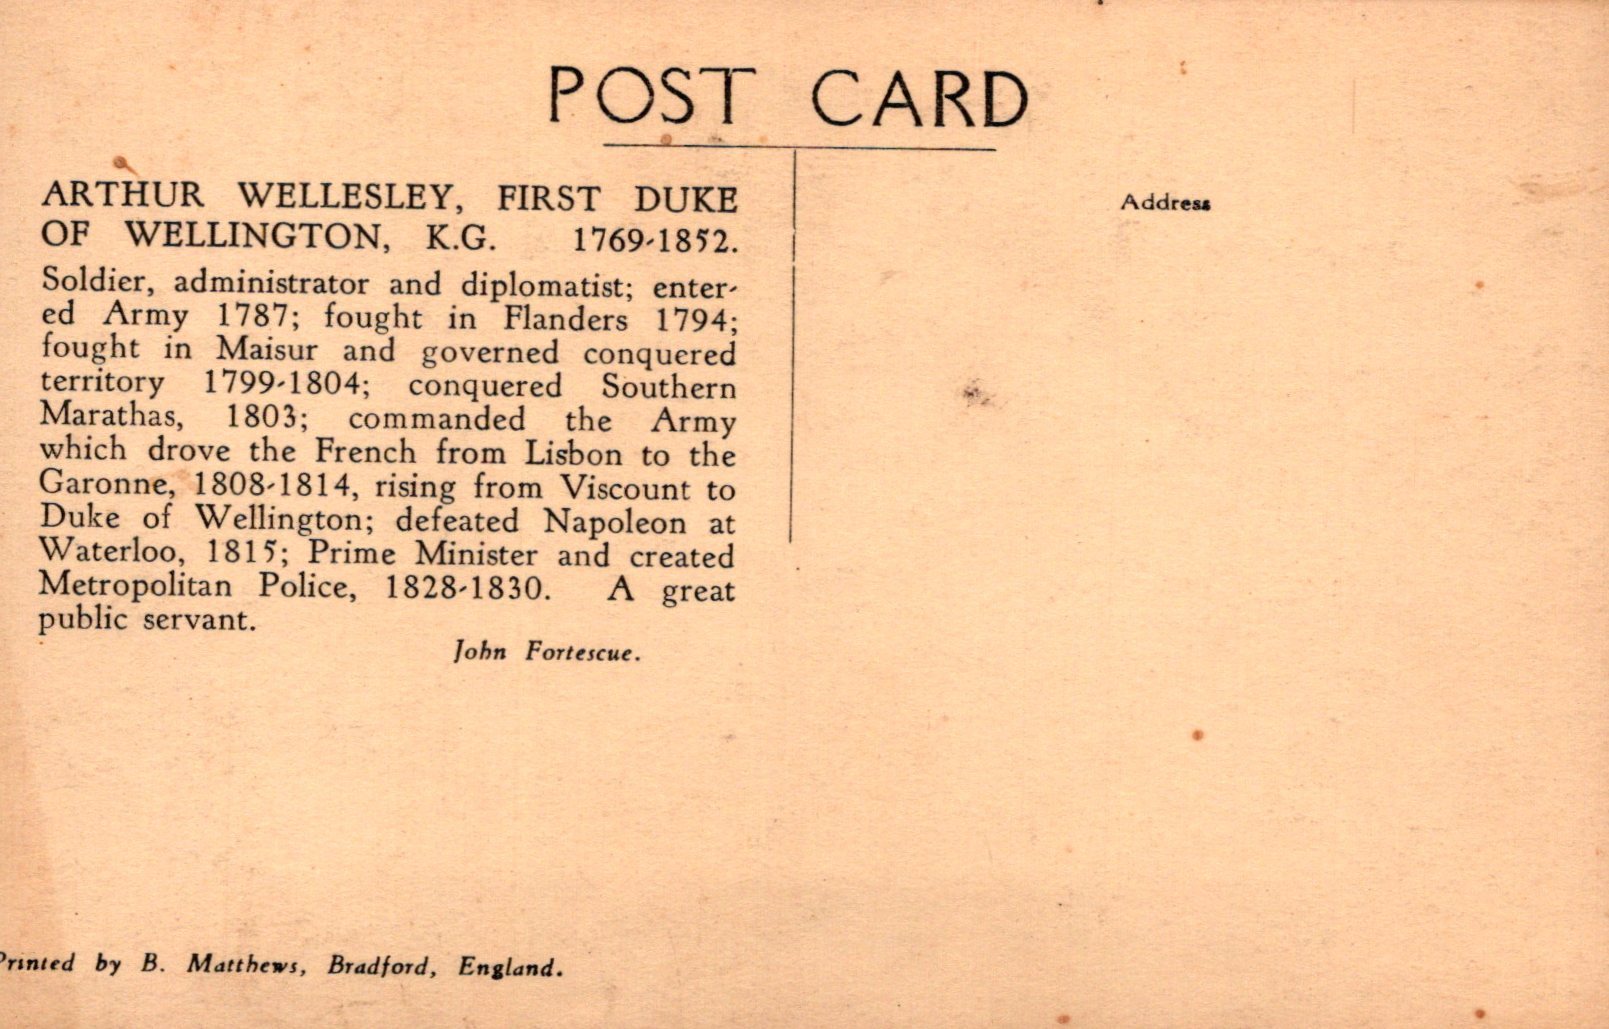 POST CARD
ARTHUR WELLESLEY, FIRST DUKE
OF WELLINGTON, K.G. 1769-1852.
Soldier, administrator and diplomatist; enter-
ed Army 1787; fought in Flanders 1794;
fought in Maisur and governed conquered
territory 1799-1804; conquered Southern
Marathas, 1803; commanded the Army
which drove the French from Lisbon to the
Garonne, 1808-1814, rising from Viscount to
Duke of Wellington; defeated Napoleon at
Waterloo, 1815; Prime Minister and created
Metropolitan Police, 1828-1830. A great
public servant.
John Fortescue.
Printed by B. Matthews, Bradford, England.
Address